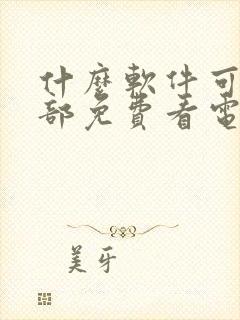 什麼軟件可
部免費看電
美牙